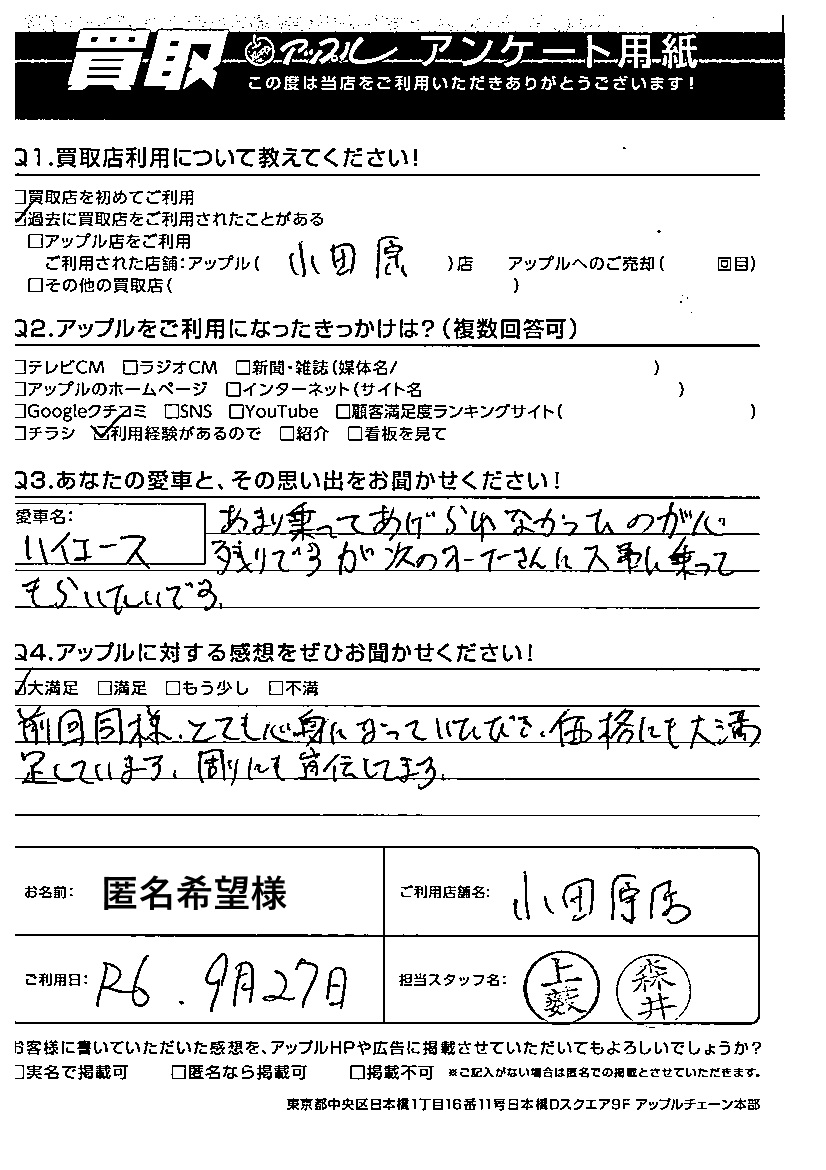 買取 アップル アンケート用紙
この度は当店をご利用いただきありがとうございます!
Q1.買取店利用について教えてください!
□買取店を初めてご利用
☑過去に買取店をご利用されたことがある
□アップル店をご利用
ご利用された店舗:アップル( 小田原 )店 アップルへのご売却( 回目)
□その他の買取店( )
Q2.アップルをご利用になったきっかけは?(複数回答可)
□テレビCM □ラジオCM □新聞・雑誌(媒体名/ )
□アップルのホームページ □インターネット(サイト名 )
□Googleクチコミ □SNS □YouTube □顧客満足度ランキングサイト( )
□チラシ ☑利用経験があるので □紹介 □看板を見て
Q3.あなたの愛車と、その思い出をお聞かせください!
愛車名:
ハイエース
あまり乗ってあげられなかったのが心
残りですが次のオーナーさんに大事に乗って
もらいたいです。
Q4.アップルに対する感想をぜひお聞かせください!
☑大満足 □満足 □もう少し □不満
前回同様、とても心身になっていただき、価格にも大満
足しています、周りにも宣伝してます。
お名前: 匿名希望様 ご利用店舗名: 小田原店
ご利用日: R6.9月27日 担当スタッフ名: 上薮 森井
お客様に書いていただいた感想を、アップルHPや広告に掲載させていただいてもよろしいでしょうか?
□実名で掲載可 □匿名なら掲載可 □掲載不可 ※ご記入がない場合は匿名での掲載とさせていただきます。
東京都中央区日本橋1丁目16番11号日本橋Dスクエア9F アップルチェーン本部